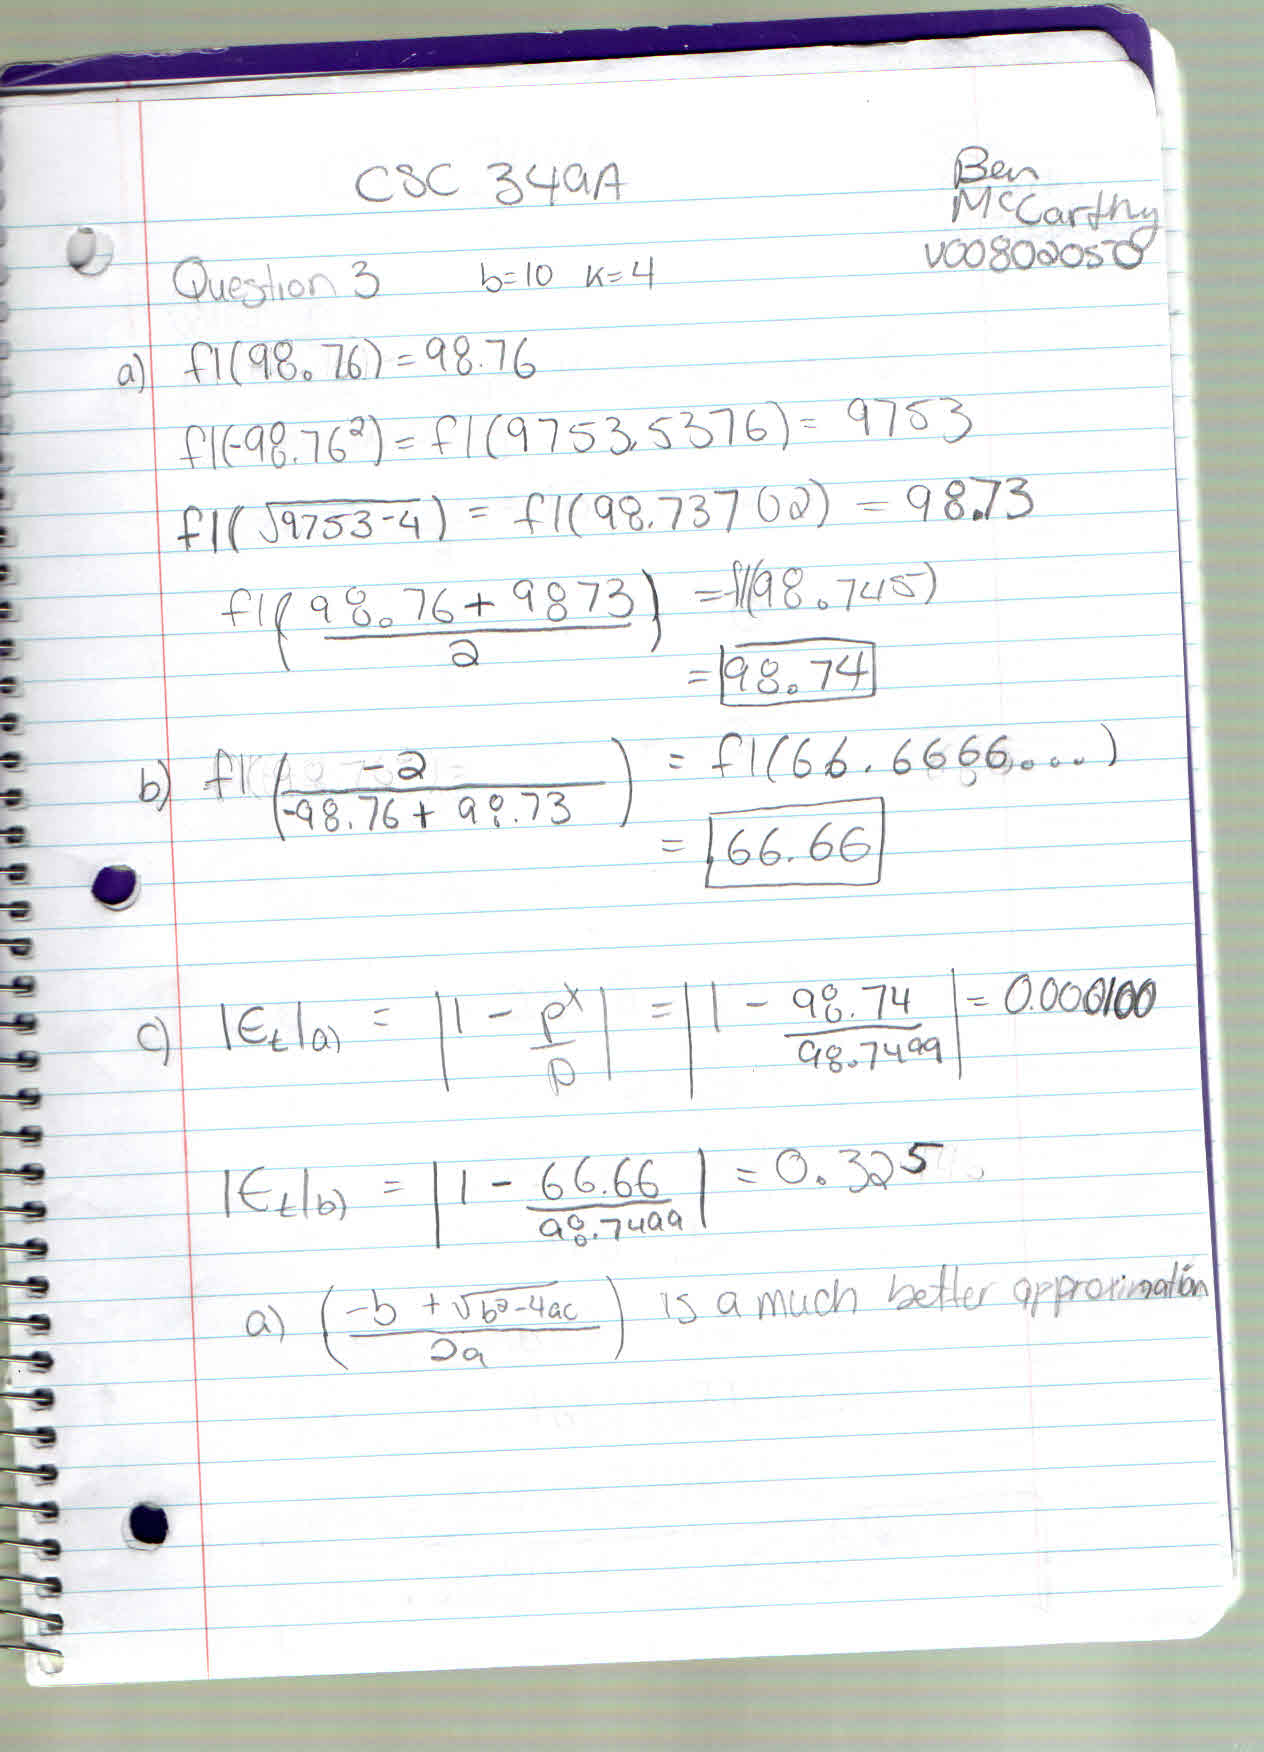 CSC 349A
Ben
McCarthy
V00802050
Question 3 b=10 k=4
a) fl(98.76) = 98.76
fl(-98.76²) = fl(9753.5376) = 9753
fl(√9753-4) = fl(98.73702) = 98.73
fl(98.76 + 9873 / 2) = fl(98.745)
= 98.74
b) fl(-2 / -98.76 + 98.73) = fl(66.6666...)
= 66.66
c) |Et|a) = |1 - p* / p| = |1 - 98.74 / 98.7499| = 0.000100
|Et|b) = |1 - 66.66 / 98.7499| = 0.325
a) (-b + √b²-4ac / 2a) is a much better approximation